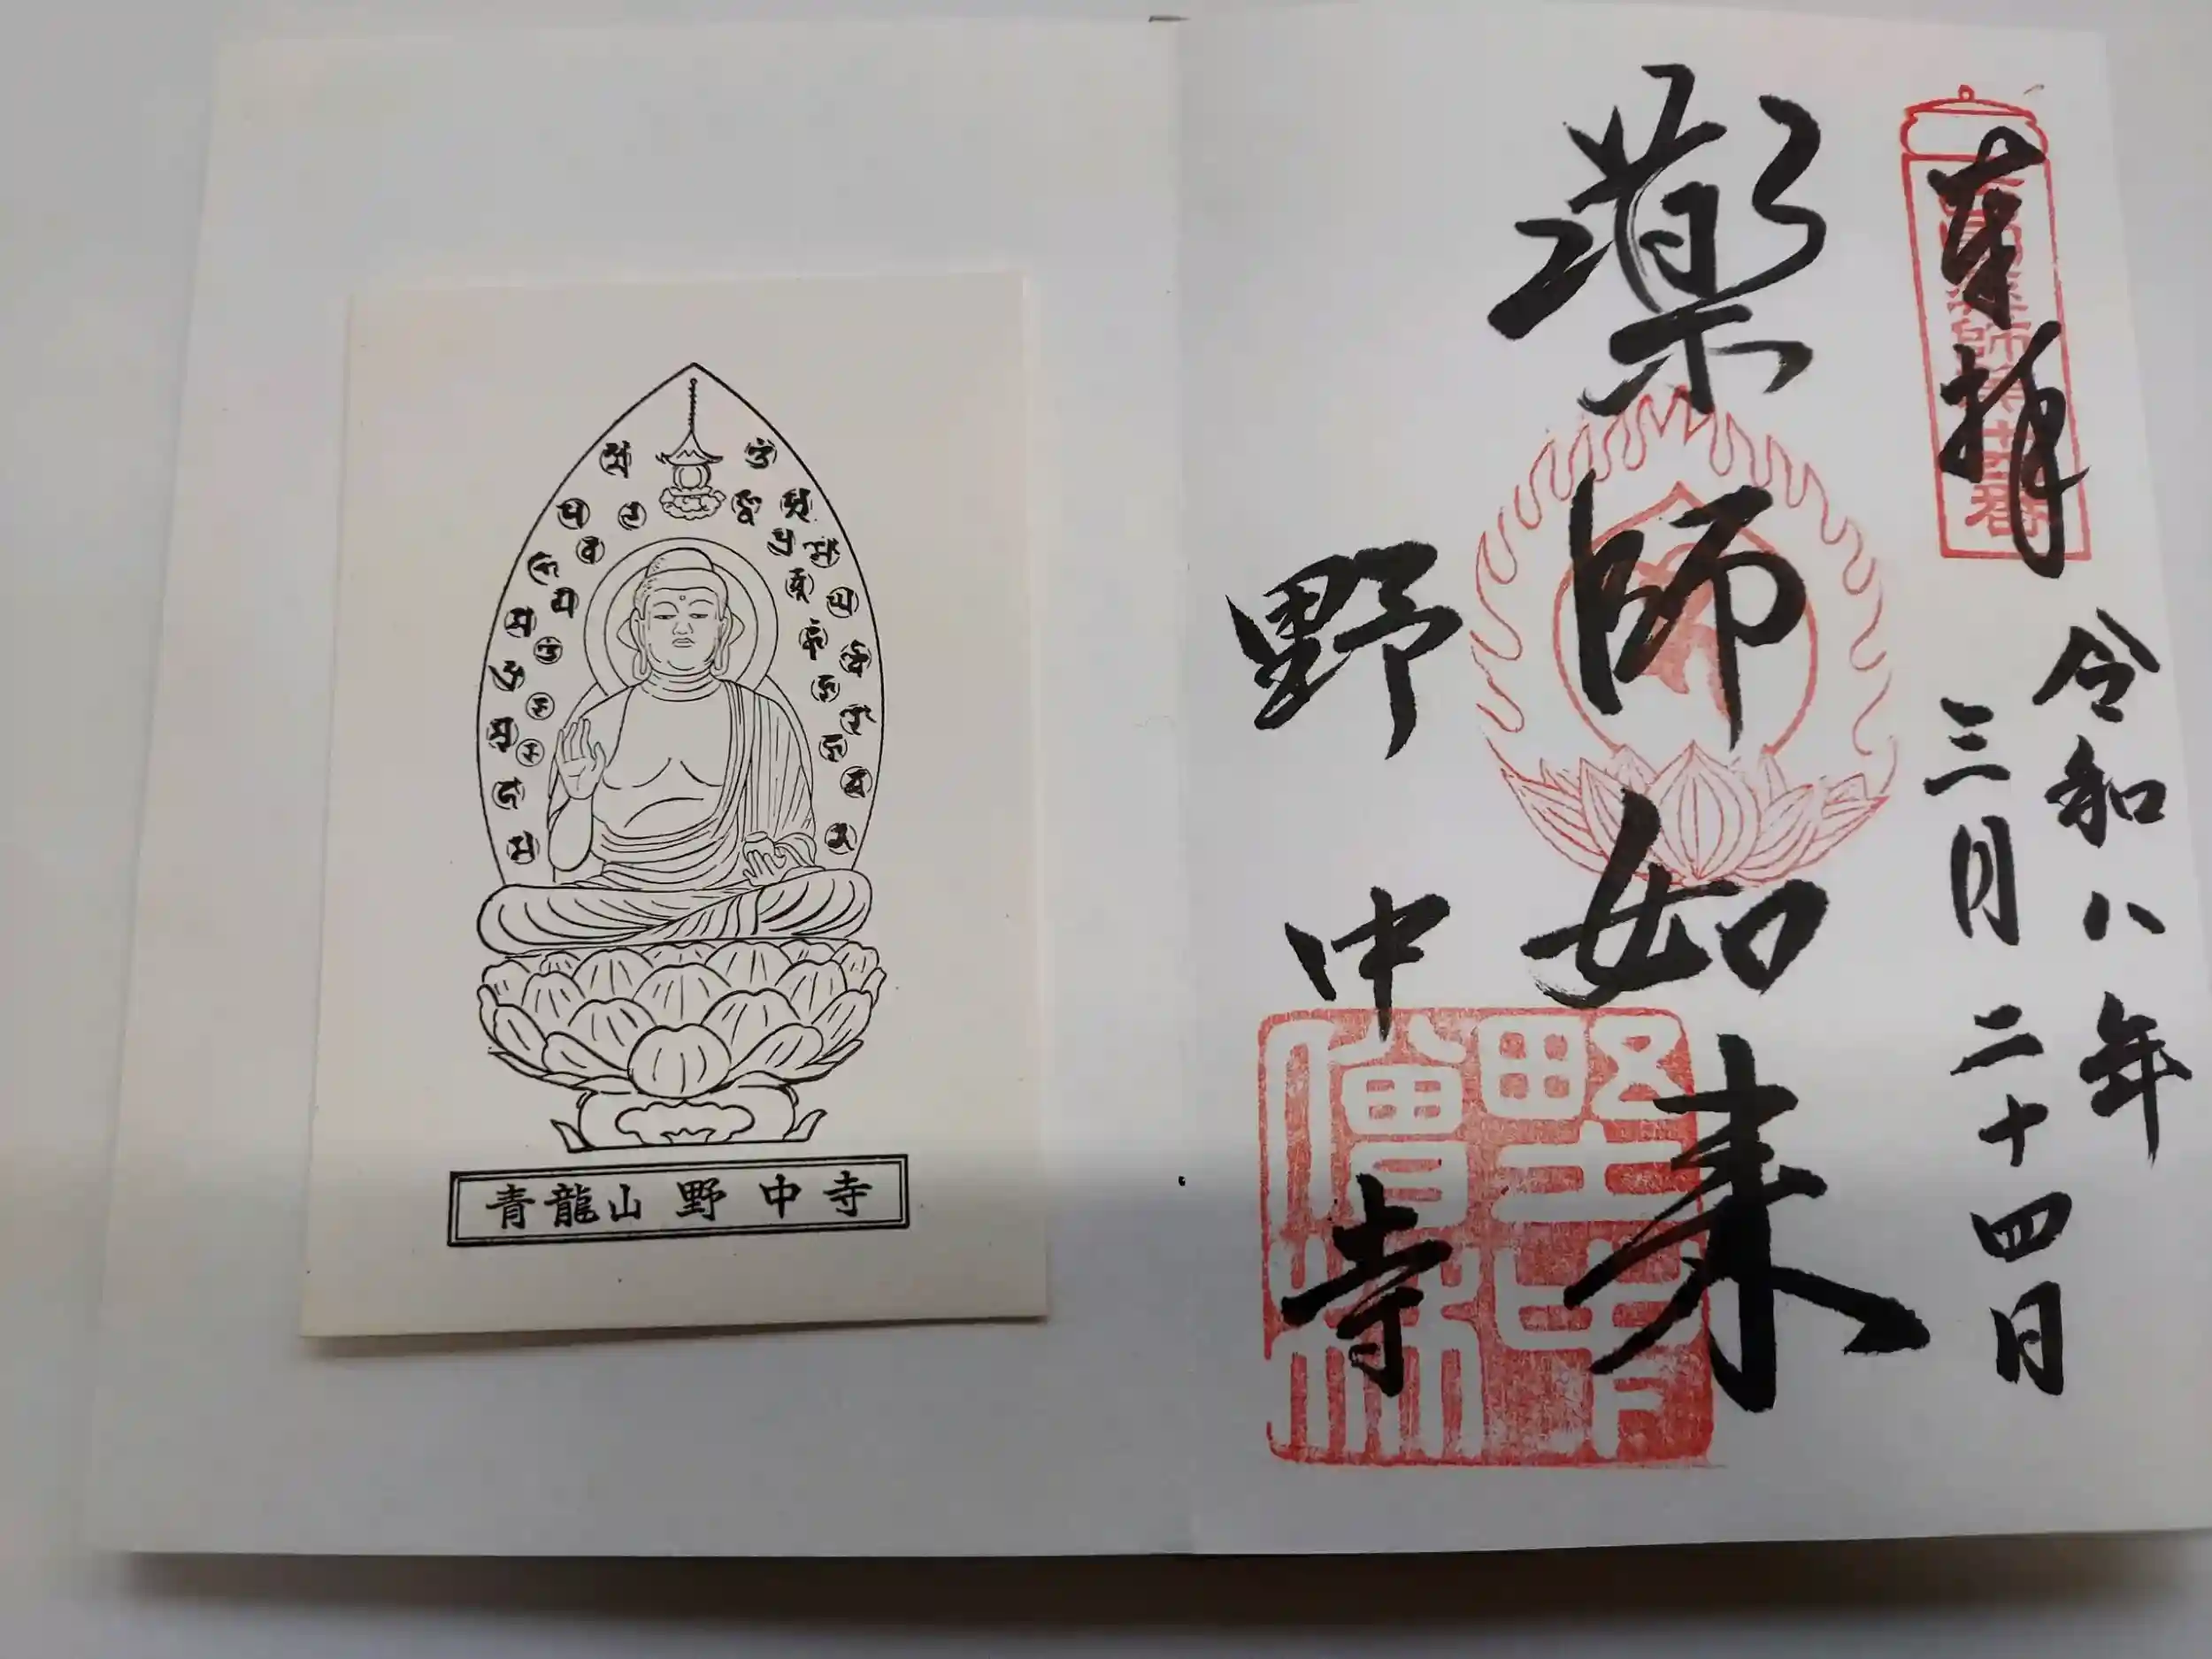 奉拝
令和八年
三月二十四日
薬師如来
野中寺
野中寺僧林
青龍山 野中寺